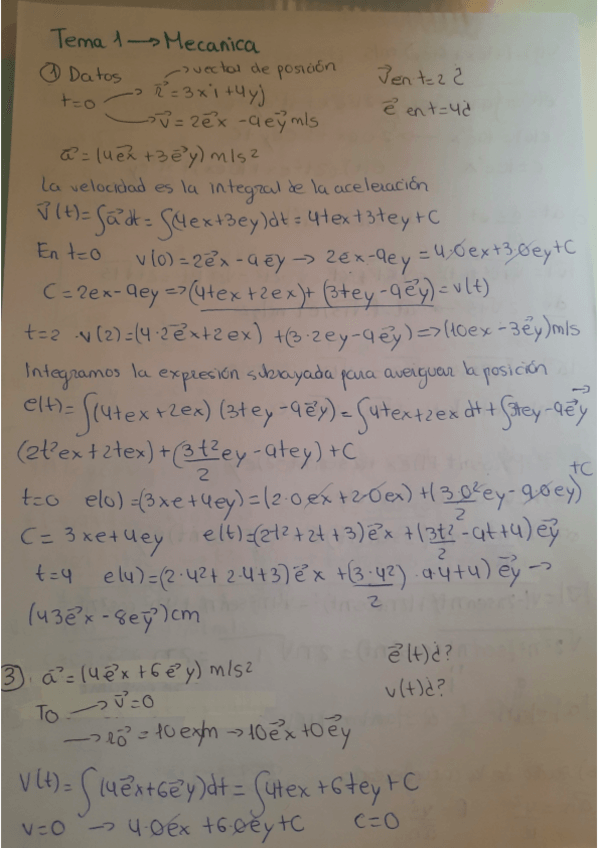 Tema 1 → Mecanica
① Datos → vector de posición
t=0 → r⃗=3xi+4yj v⃗ en t=2 ¿
→ v⃗=2e⃗x -9e⃗y m/s e⃗ en t=4¿
a⃗=(4e⃗x+3e⃗y) m/s2
La velocidad es la integral de la aceleración
v⃗(t)=∫a⃗dt=∫(4ex+3ey)dt=4tex+3tey+C
En t=0 v(0)=2e⃗x-9e⃗y → 2ex-9ey=4.0ex+3.0ey+C
C=2ex-9ey => (4tex+2ex)+(3tey-9e⃗y)=v(t)
t=2 v(2)=(4·2e⃗x+2ex) +(3·2ey-9e⃗y)=>(10ex-3e⃗y)m/s
Integramos la expresión subrayada para averiguar la posición
e(t)=∫(4tex+2ex) (3tey-9e⃗y)=∫4tex+2ex dt+∫3tey-9e⃗y
(2t²ex+2tex)+(3t²/2 ey-9tey)+C
t=0 e(0)=(3xe+4ey)=(2·0ex+2·0ex)+(3·0²/2 ey-9.0ey)+C
C=3xe+4ey e(t)=(2t²+2t+3)e⃗x+(3t²/2-9t+4)e⃗y
t=4 e(4)=(2·4²+2·4+3)e⃗x+(3·4²/2)·9·4+4)e⃗y→
(43e⃗x-8e⃗y)cm
③. a⃗=(4e⃗x+6e⃗y) m/s2 e⃗(t)¿?
To → v⃗=0 v(t)¿?
→ r⃗0=10ex/m → 10e⃗x+0e⃗y
V(t)=∫(4e⃗x+6e⃗y)dt=∫4tex+6tey+C
v=0 → 4.0ex+6.0ey+C C=0